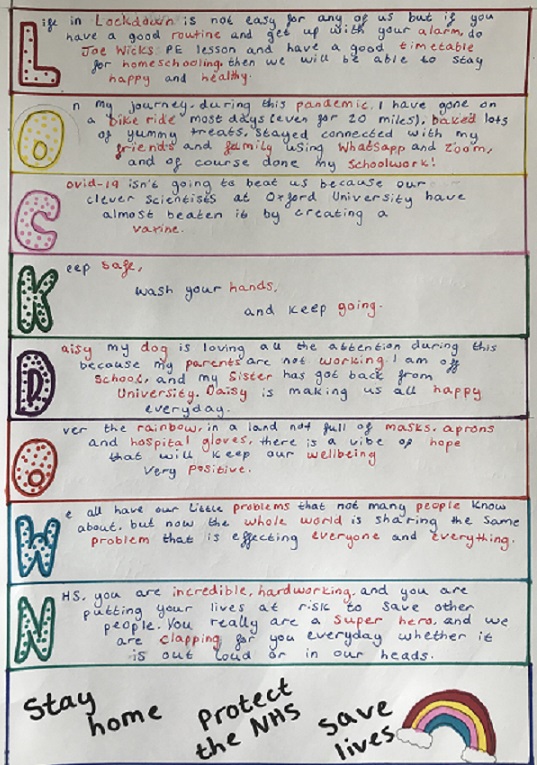 Life in Lockdown is not easy for any of us but if you
have a good routine and get up with your alarm, do
Joe Wicks PE lesson and have a good timetable
for homeschooling then we will be able to stay
happy and healthy.
On my journey, during this pandemic, I have gone on
a bike ride most days (even for 20 miles), baked lots
of yummy treats, stayed connected with my
friends and family using Whatsapp and Zoom,
and of course done my schoolwork!
Covid-19 isn't going to beat us because our
clever scientists at Oxford University have
almost beaten it by creating a
vaxine.
Keep safe,
wash your hands,
and keep going.
Daisy my dog is loving all the attention during this
because my parents are not working. I am off
School, and my Sister has got back from
University. Daisy is making us all happy
everyday.
Over the rainbow, in a land not full of masks, aprons
and hospital gloves, there is a vibe of hope
that will keep our wellbeing
very positive.
We all have our little problems that not many people know
about, but now the whole world is sharing the same
problem that is effecting everyone and everything.
NHS, you are incredible, hardworking, and you are
putting your lives at risk to save other
people. You really are a super hero, and we
are clapping for you everyday whether it
is out loud or in our heads.
Stay
home
protect
the NHS
save
lives